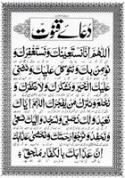 دعائے قنوت
اَللّٰهُمَّ اِنَّا نَسْتَعِيْنُكَ وَنَسْتَغْفِرُكَ
وَنُؤْمِنُ بِكَ وَنَتَوَكَّلُ عَلَيْكَ وَنُثْنِيْ
عَلَيْكَ الْخَيْرَ وَنَشْكُرُكَ وَلَا نَكْفُرُكَ وَ
نَخْلَعُ وَنَتْرُكُ مَنْ يَّفْجُرُكَ اَللّٰهُمَّ اِيَّاكَ
نَعْبُدُ وَلَكَ نُصَلِّيْ وَنَسْجُدُ وَاِلَيْكَ نَسْعٰى
وَنَحْفِدُ وَنَرْجُوْا رَحْمَتَكَ وَنَخْشٰى عَذَابَكَ
اِنَّ عَذَابَكَ بِالْكُفَّارِ مُلْحِقٌ